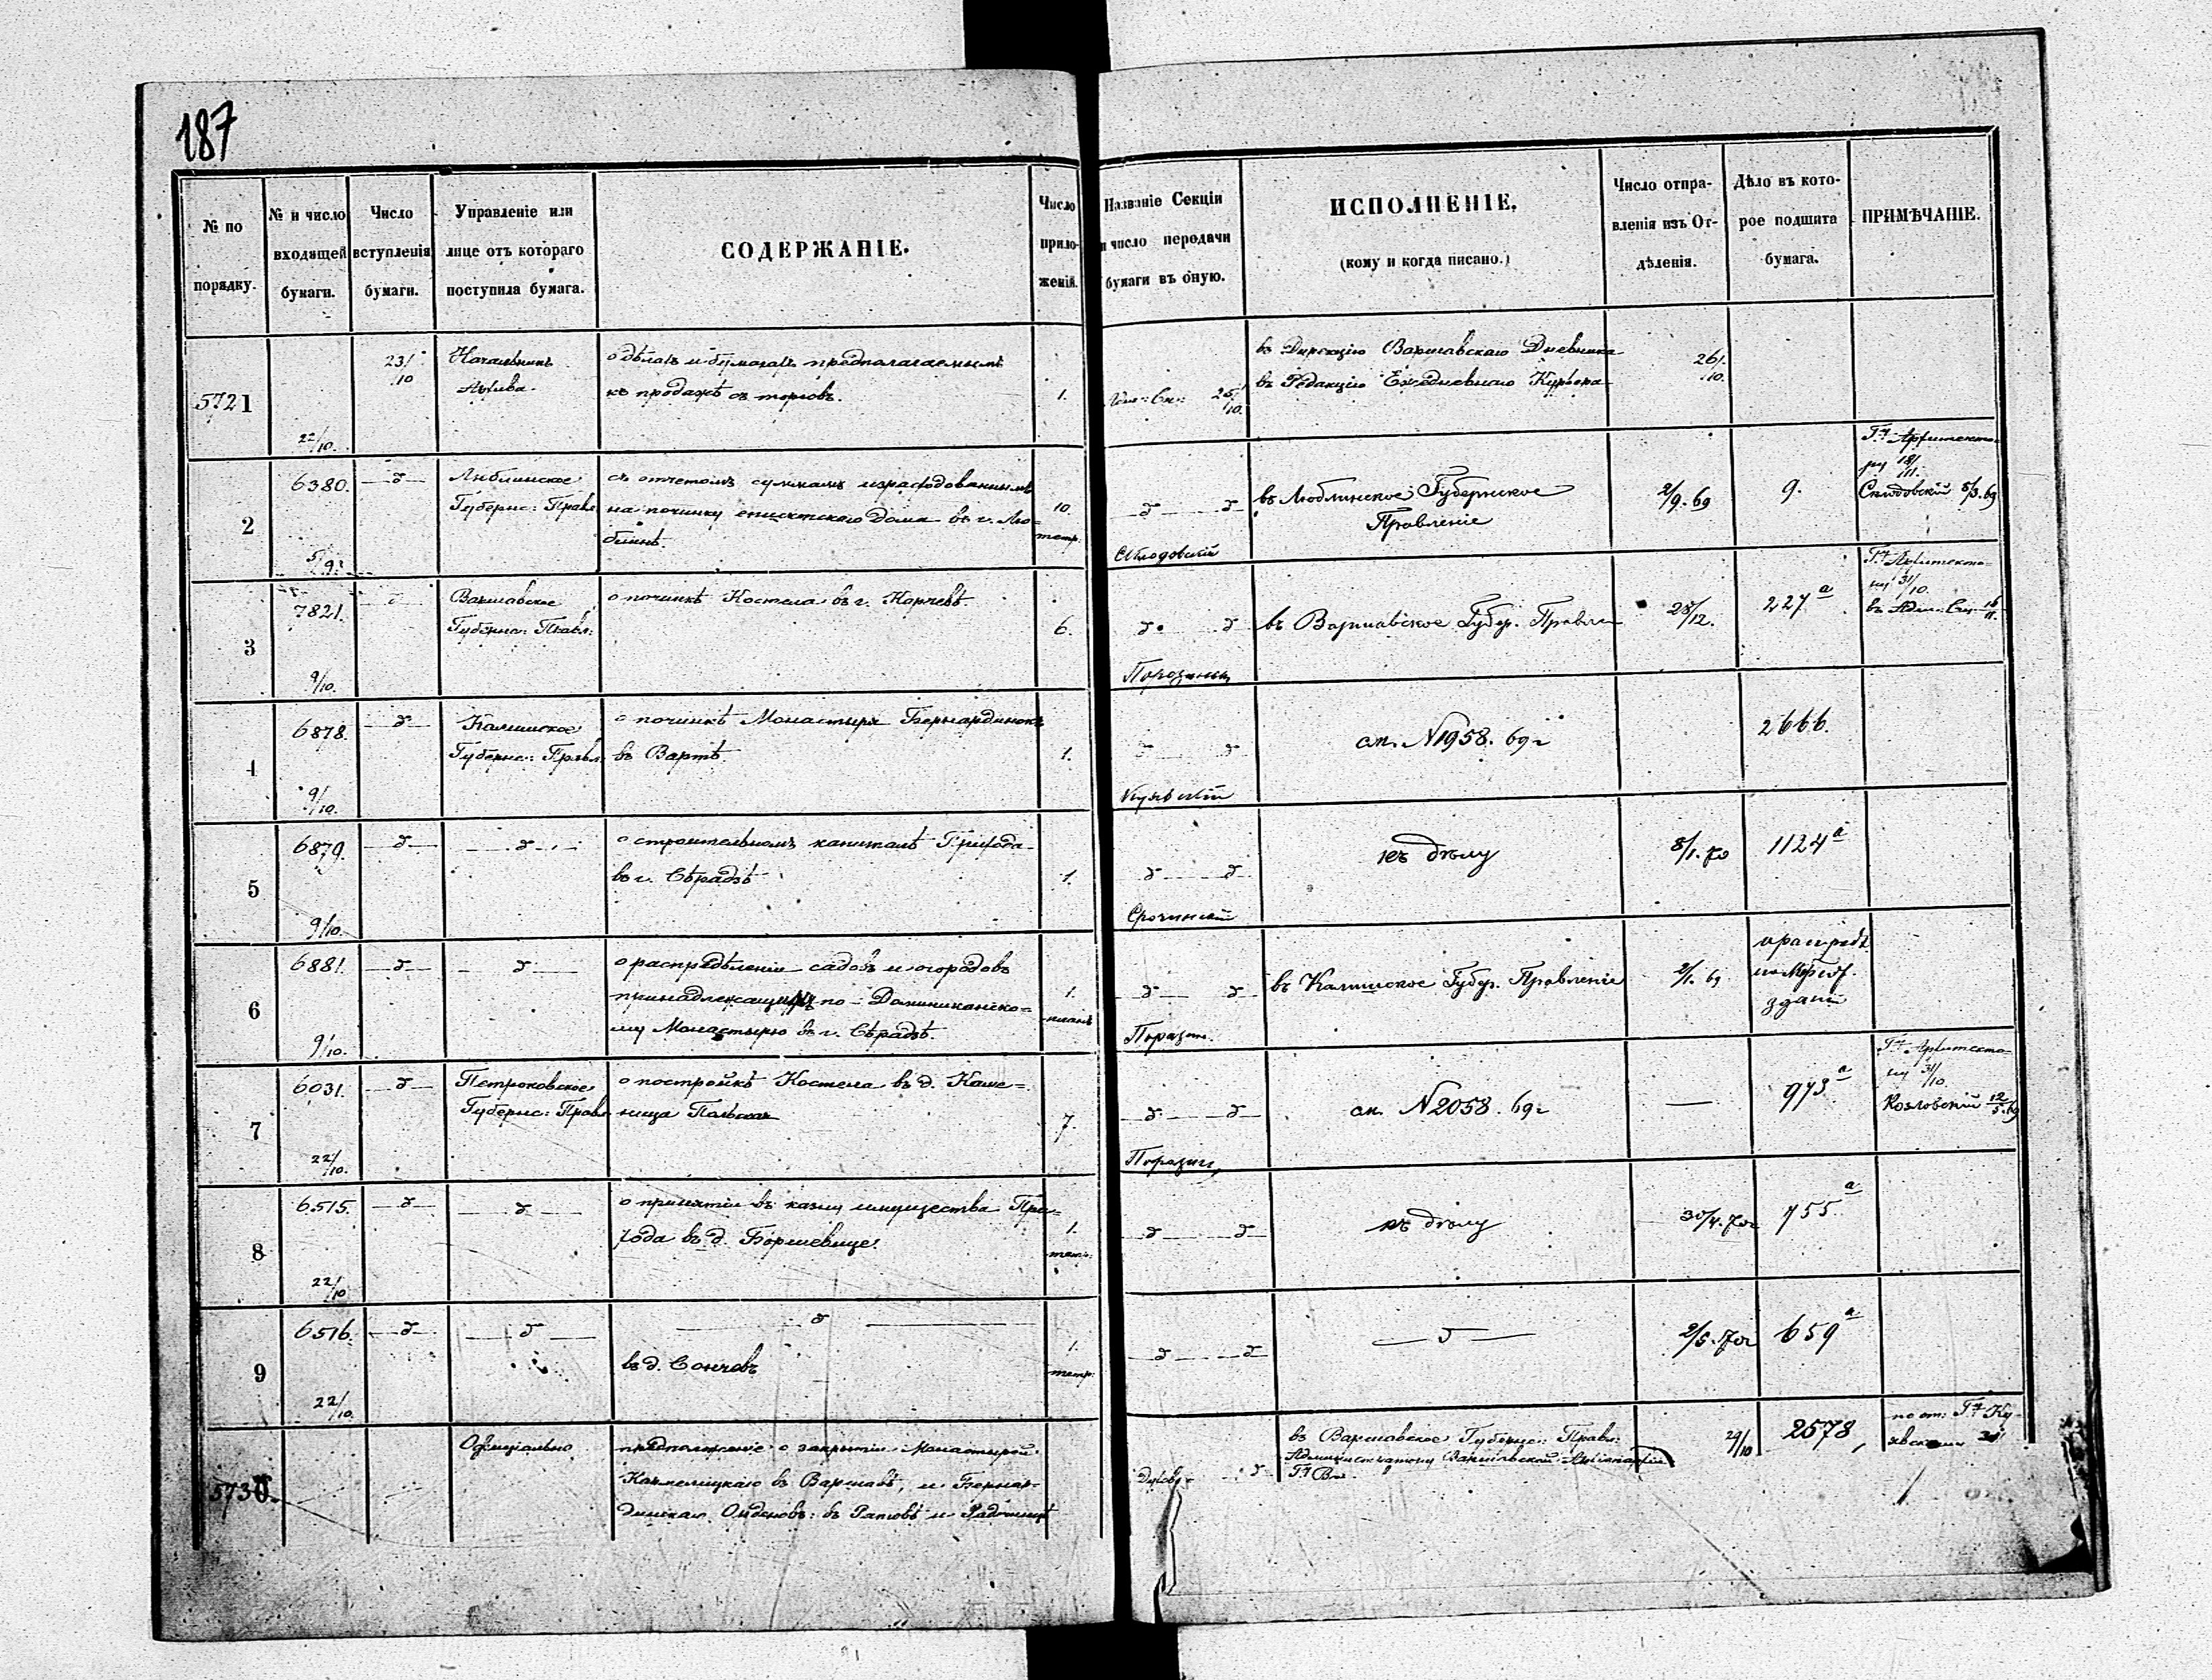 187
№ по порядку.
№ и число входящей бумаги.
Число вступленія бумаги.
Управленіе или лице отъ котораго поступила бумага.
СОДЕРЖАНІЕ.
Число приложеній.
Названіе Секціи и число передачи бумаги въ оную.
ИСПОЛНЕНІЕ.
(кому и когда писано.)
Число отправленія изъ Отдѣленія.
Дѣло въ которое подшита бумага.
ПРИМѢЧАНІЕ.
5721
22/10.
23/10
Начальникъ
Архива.
о дѣлахъ и бумагахъ предполагаемыхъ
къ продажѣ съ торговъ.
1.
25/10.
въ Дирекцію Варшавскаго Дневника
въ Редакцію Ежедневнаго Курьера
26/10.
2
6380.
5/9.
Люблинское
Губернс: Правл
съ отчетомъ суммамъ израсходованнымъ
на починку епископскаго дома въ г. Лю=
блинѣ.
10.
тетр.
въ Люблинское Губернское
Правленіе
2/9. 69
9.
Гну Архитекто-
ру 18/11.
3
7821.
9/10.
Варшавское
Губернс: Правл:
о починкѣ Костела въ г. Карчевѣ.
6.
въ Варшавское Губер. Правле
28/12.
227 а
Гну Архитекто-
ру 31/10.
4
6878.
9/10.
Калишское
Губернс: Правл.
о починкѣ Монастыря Бернардинокъ
въ Вартѣ.
1.
см. N1958. 69 г
2666.
5
6879.
9/10.
о строительномъ капиталѣ Прихода
въ г. Сѣрадзѣ
1.
къ дѣлу
8/1. 70
1124 а
6
6881.
9/10.
о распредѣленіи садовъ и огородовъ
принадлежащихъ по-Доминиканско=
му Монастырю въ г. Сѣрадзѣ.
1.
планъ
въ Калишское Губер. Правленіе
2/1. 69
зданій
7
6031.
22/10.
Петроковское
Губернс: Правл
о постройкѣ Костела въ д. Каме=
ница Польская
7.
см. N2058. 69 г
973 а
Гну Архитекто-
ру 31/10.
Козловскій 12/5. 69
8
6515.
22/10
о принятіи въ казну имущества При=
хода въ д. Боршевице.
1.
тетр:
къ дѣлу
30/4. 70 г
755 а
9
6516.
22/10.
въ д. Сончовъ
1.
тетр:
2/5. 70 г
659 а
5730.
Офиціально
предположеніе о закрытіи Монастырей:
Кармелицкаго въ Варшавѣ, и Бернар-
динскаго Орденовъ: въ
въ Варшавское Губернс: Правл:
29/10
2578